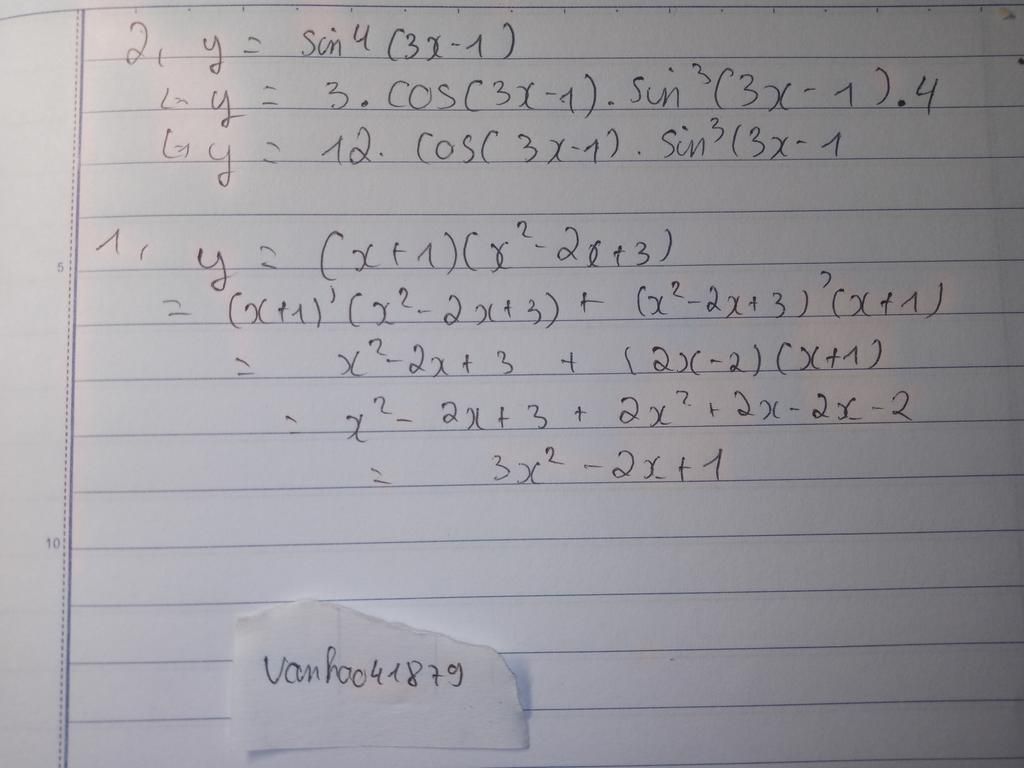 2, y = sin⁴(3x-1)
↳ y = 3.cos(3x-1).sin³(3x-1).4
↳ y = 12. cos(3x-1). sin³(3x-1
1, y = (x+1)(x²-2x+3)
= (x+1)'(x²-2x+3) + (x²-2x+3)'(x+1)
= x²-2x+3 + (2x-2)(x+1)
= x²- 2x+3 + 2x²+2x-2x-2
= 3x²-2x+1
5
10
vanhoo41879